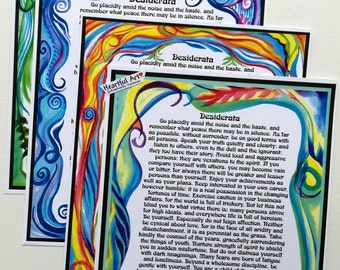 Go placidly amid the noise and the haste, and
remember what peace there may be in silence. As far
Desiderata
Go placidly amid the noise and the haste, and
Heartful Art
Desiderata
Go placidly amid the noise and the haste, and
remember what peace there may be in silence. As far
as possible, without surrender, be on good terms with
all persons. Speak your truth quietly and clearly; and
listen to others, even to the dull and the ignorant;
they too have their story. Avoid loud and aggressive
persons; they are vexations to the spirit. If you
compare yourself with others, you may become vain
or bitter, for always there will be greater and lesser
persons than yourself. Enjoy your achievements as
well as your plans. Keep interested in your own career,
however humble; it is a real possession in the changing
fortunes of time. Exercise caution in your business
affairs, for the world is full of trickery. But let this not
blind you to what virtue there is; many persons strive
for high ideals, and everywhere life is full of heroism.
Be yourself. Especially do not feign affection. Neither
be cynical about love, for in the face of all aridity and
disenchantment, it is as perennial as the grass. Take
kindly the counsel of the years, gracefully surrendering
the things of youth. Nurture strength of spirit to shield
you in sudden misfortune. But do not distress yourself
with dark imaginings. Many fears are born of fatigue
and loneliness. Beyond a wholesome discipline, be
gentle with yourself. You are a child of the